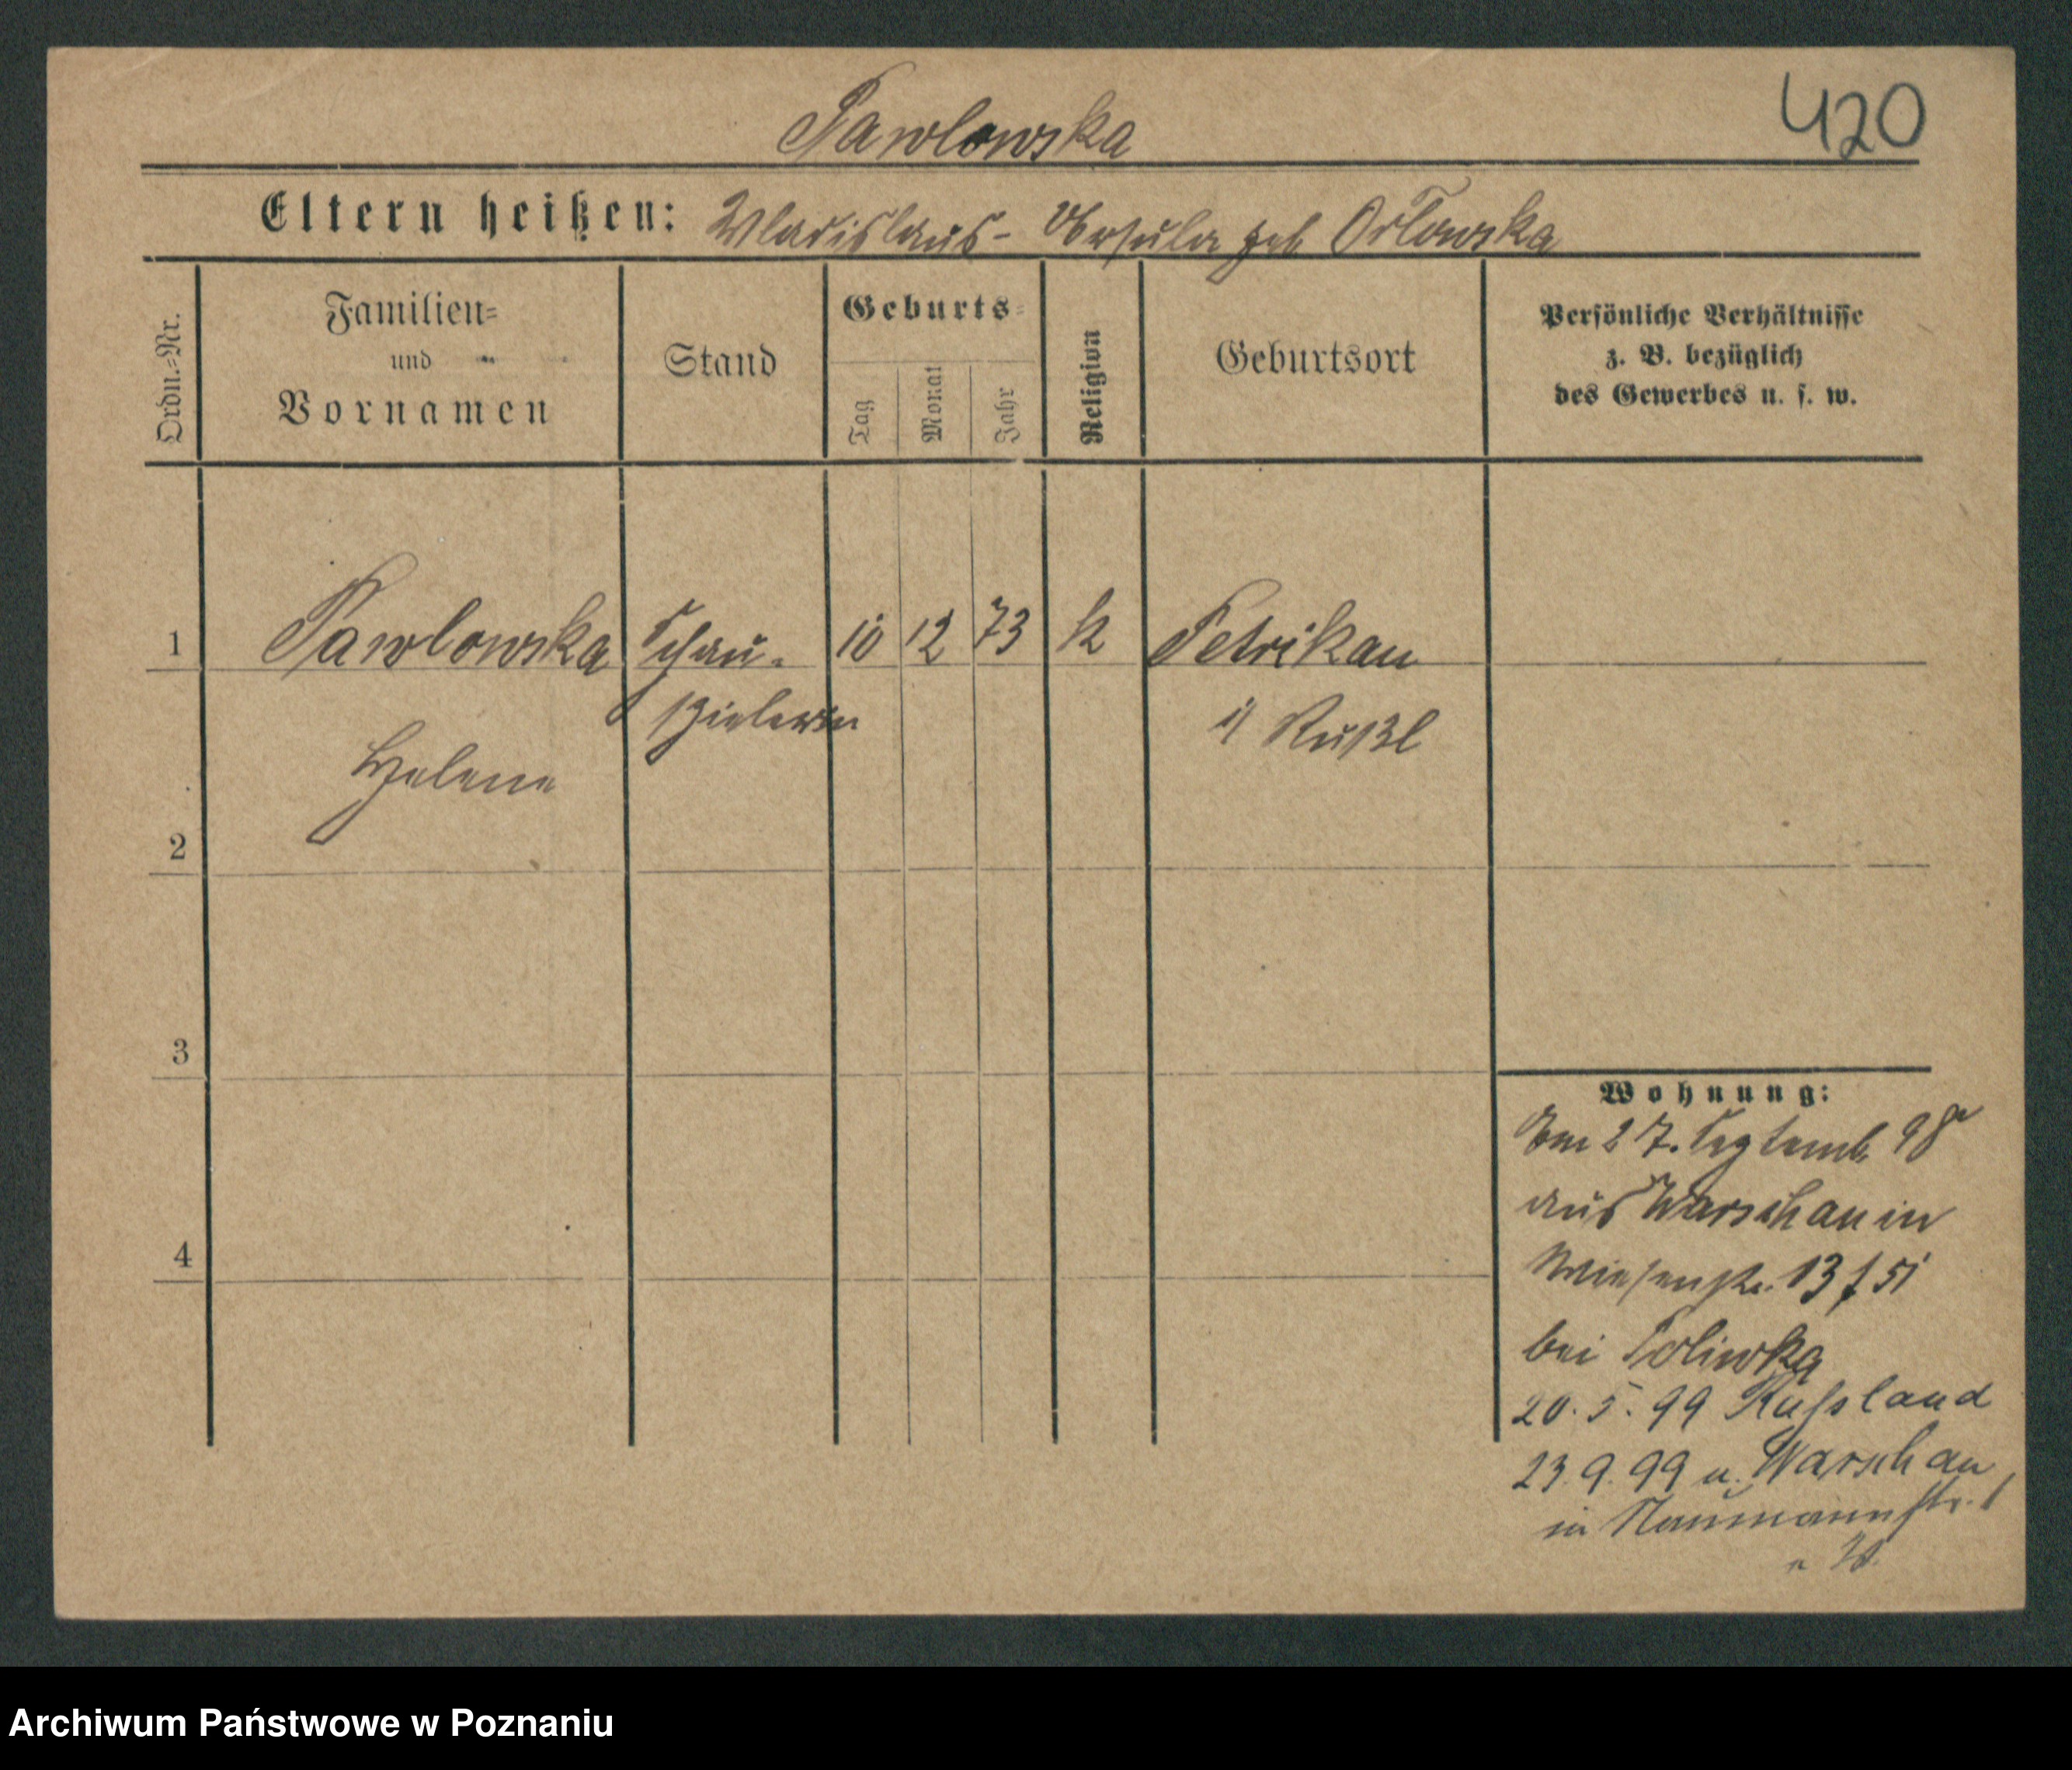 420
Pawlowska
Eltern heißen: Wladislaus - Ursula geb Orlowska
Ordn.=Nr.
Familien=
und
Vornamen
Stand
Geburts=
Tag
Monat
Jahr
Religion
Geburtsort
Persönliche Verhältnisse
z. B. bezüglich
des Gewerbes u. s. w.
1 Pawlowska Schau- 10 12 73 k Petrikau
spielerin i/ Rußl
Helene
2
3
4
Wohnung:
Am 27. Septemb. 98
aus Warschau in
Wiesenstr. 13
bei
20.5.99 Russland
23.9.99 u. Warschau
in Naumannstr. 1